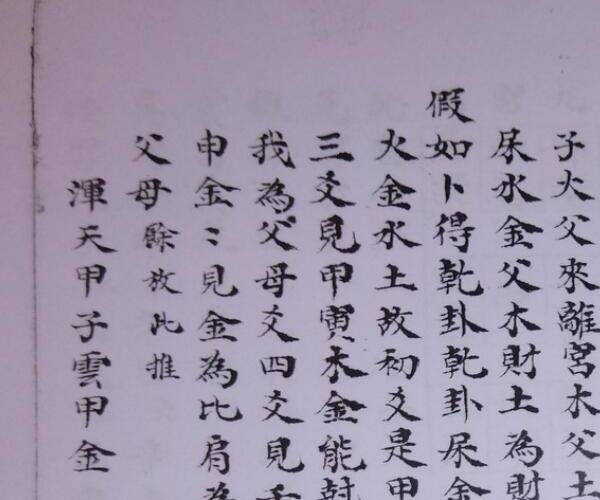 子火父來離宮木父土
尿水金父木財土為財
假如卜得乾卦乾卦尿金
火金水土故初爻是甲
三爻見甲寅木金能尅
我為父母爻四爻見壬
申金〻見金為比肩為
父母餘放此推
渾天甲子雲甲金